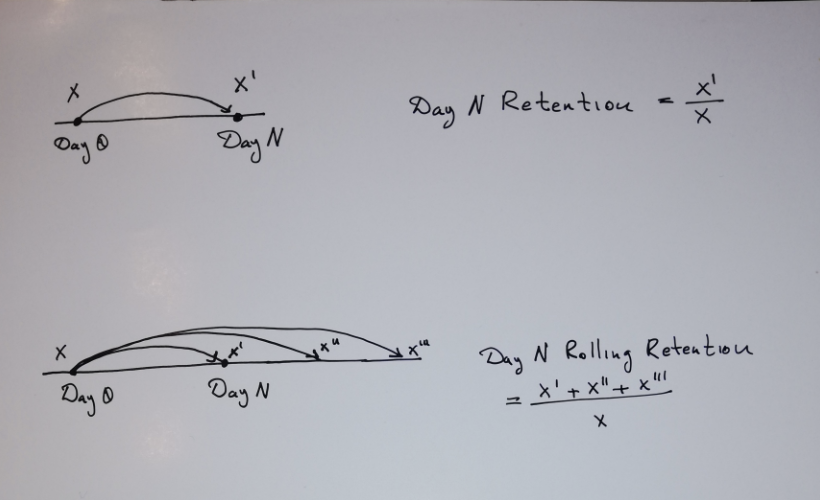 X X'
Day 0 Day N
Day N Retention = X' / X
X X' X'' X'''
Day 0 Day N
Day N Rolling Retention
= X' + X'' + X''' / X